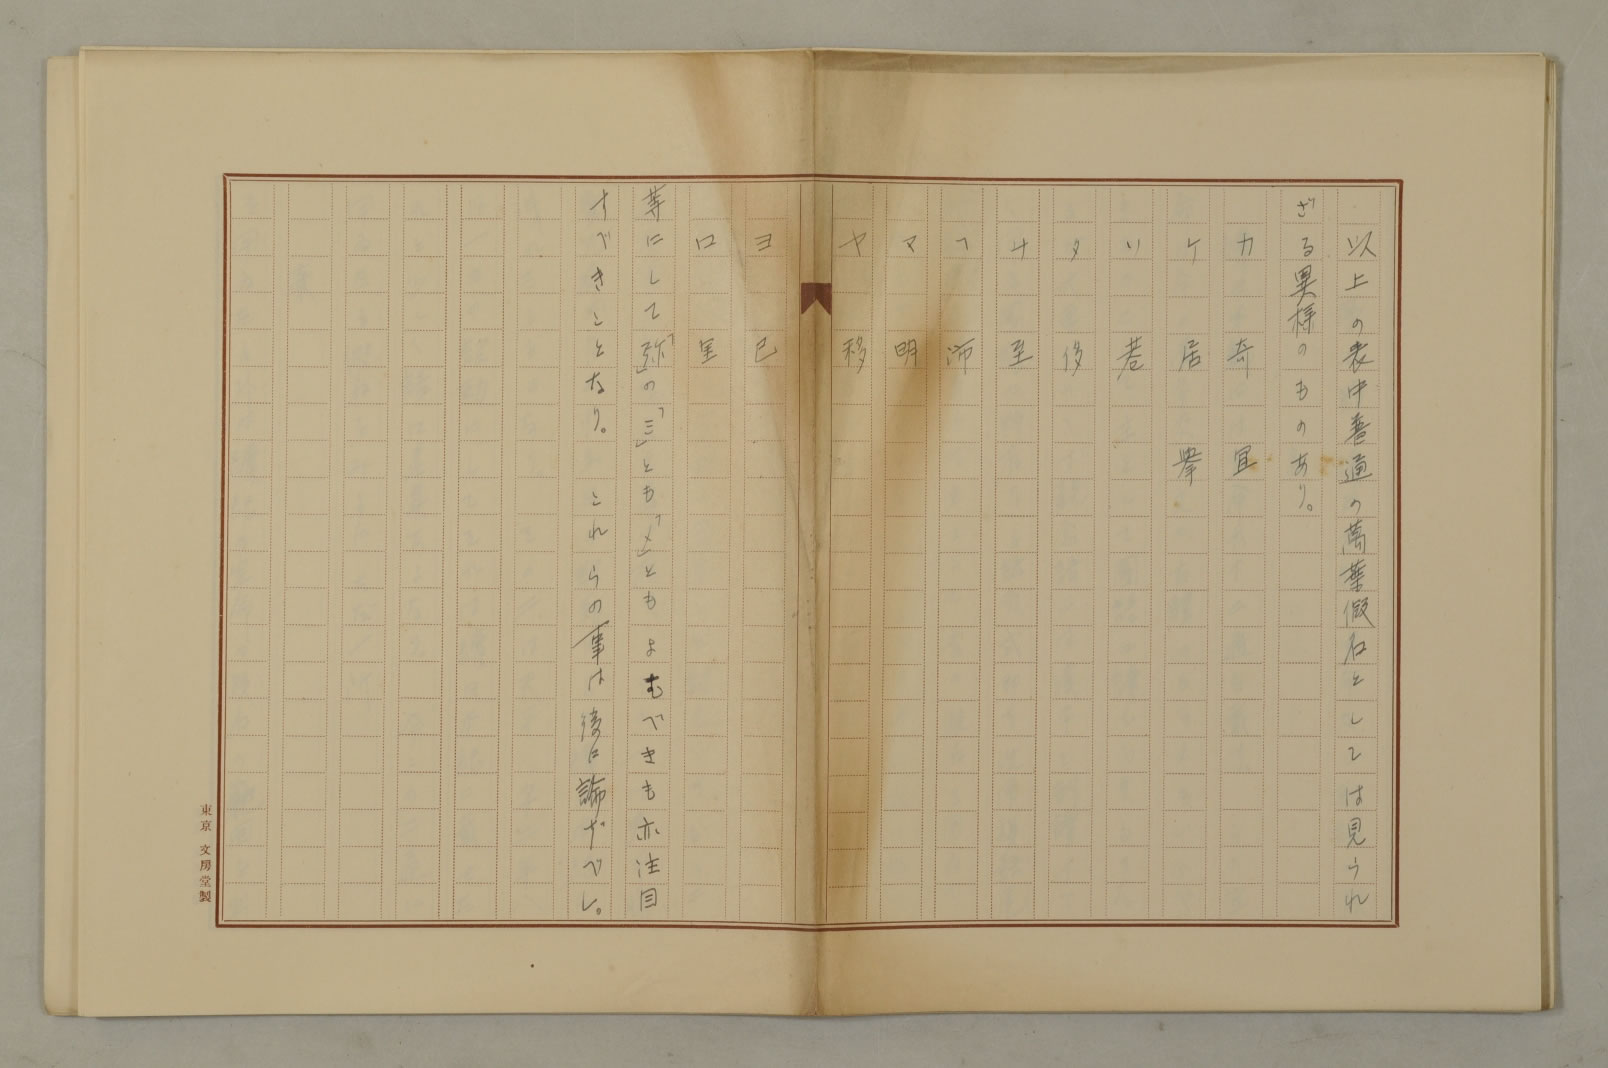 以上の表中普通の萬葉假名としては見られ
ざる異様のものあり。
カ　奇　宜
ケ　居　擧
ソ　巷
タ　侈
ナ　至
ヘ　沛
マ　明
ヤ　移
ヨ　已
ロ　里
等にして「弥」の「ミ」とも「メ」ともよむべきも亦注目
すべきことなり。これらの事は後に論ずべし。
東京 文房堂製